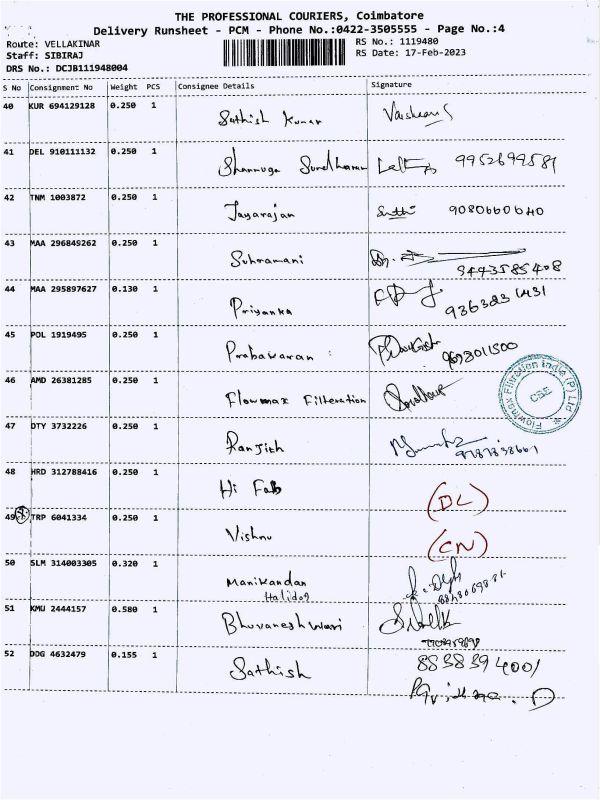 THE PROFESSIONAL COURIERS, Coimbatore
Delivery Runsheet - PCM - Phone No.:0422-3505555 - Page No.:4
Route: VELLAKINAR
RS No.: 1119480
Staff: SIBIRAJ
RS Date: 17-Feb-2023
DRS No.: DCJB111948004
S No Consignment No Weight PCS Consignee Details Signature
40 KUR 694129128 0.250 1 Sathish Kumar
41 DEL 910111132 0.250 1 Shanmuga Sundharam 9952699581
42 TNM 1003872 0.250 1 Jayarajan 9080660640
43 MAA 296849262 0.250 1 Suhramani
9443585408
44 MAA 295897627 0.130 1 Priyanka
45 POL 1919495 0.250 1 Prabawaran : 9693011500
46 AMD 26381285 0.250 1 Flowmax Filteration
Flowmax Filtration India (P) Ltd
CBE
47 DTY 3732226 0.250 1 Ranjith
48 HRD 312788416 0.250 1 Hi Fab (DL)
49 TRP 6041334 0.250 1 Vishnu (CN)
50 SLM 314003305 0.320 1 Manikandan
Halidog
51 KMU 2444157 0.580 1 Bhuvaneshwari
52 DDG 4632479 0.155 1 Sathish 8838394001